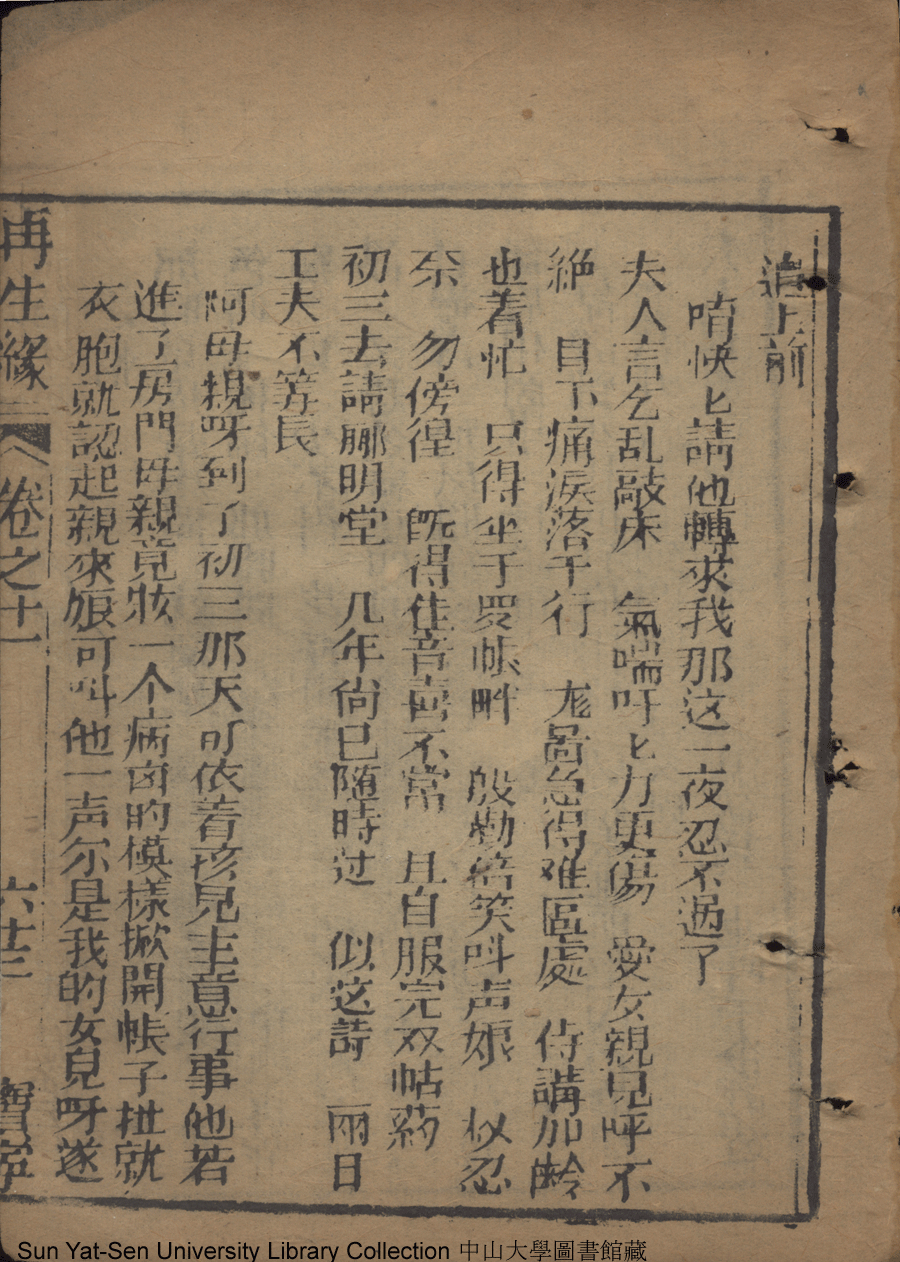 追上前
唷快匕請他轉來我那这一夜忍不過了
夫人言乞乱敲床　氣喘吁匕力更傷　愛女親兒呼不
絶　目下痛淚落千行　龙啚急得难區處　侍講加齡
也着忙　只得坐于罗帳畔　殷勤陪笑叫声娘　权忍
奈　勿傍徨　既得佳音喜不常　且自服完双帖药
初三去請郦明堂　几年尚已随時过　似这詩　兩日
工夫不筭長
阿母親呀到了初三那天可依着孩兒主意行事他若
進了房門母親竟妝一个病囱的模樣掀開帳子扯就
衣胞就認起親來娘可叫他一声尔是我的女兒呀遂
再生緣　卷之十一　六十三　寶寧
Sun Yat-Sen University Library Collection 中山大學圖書館藏